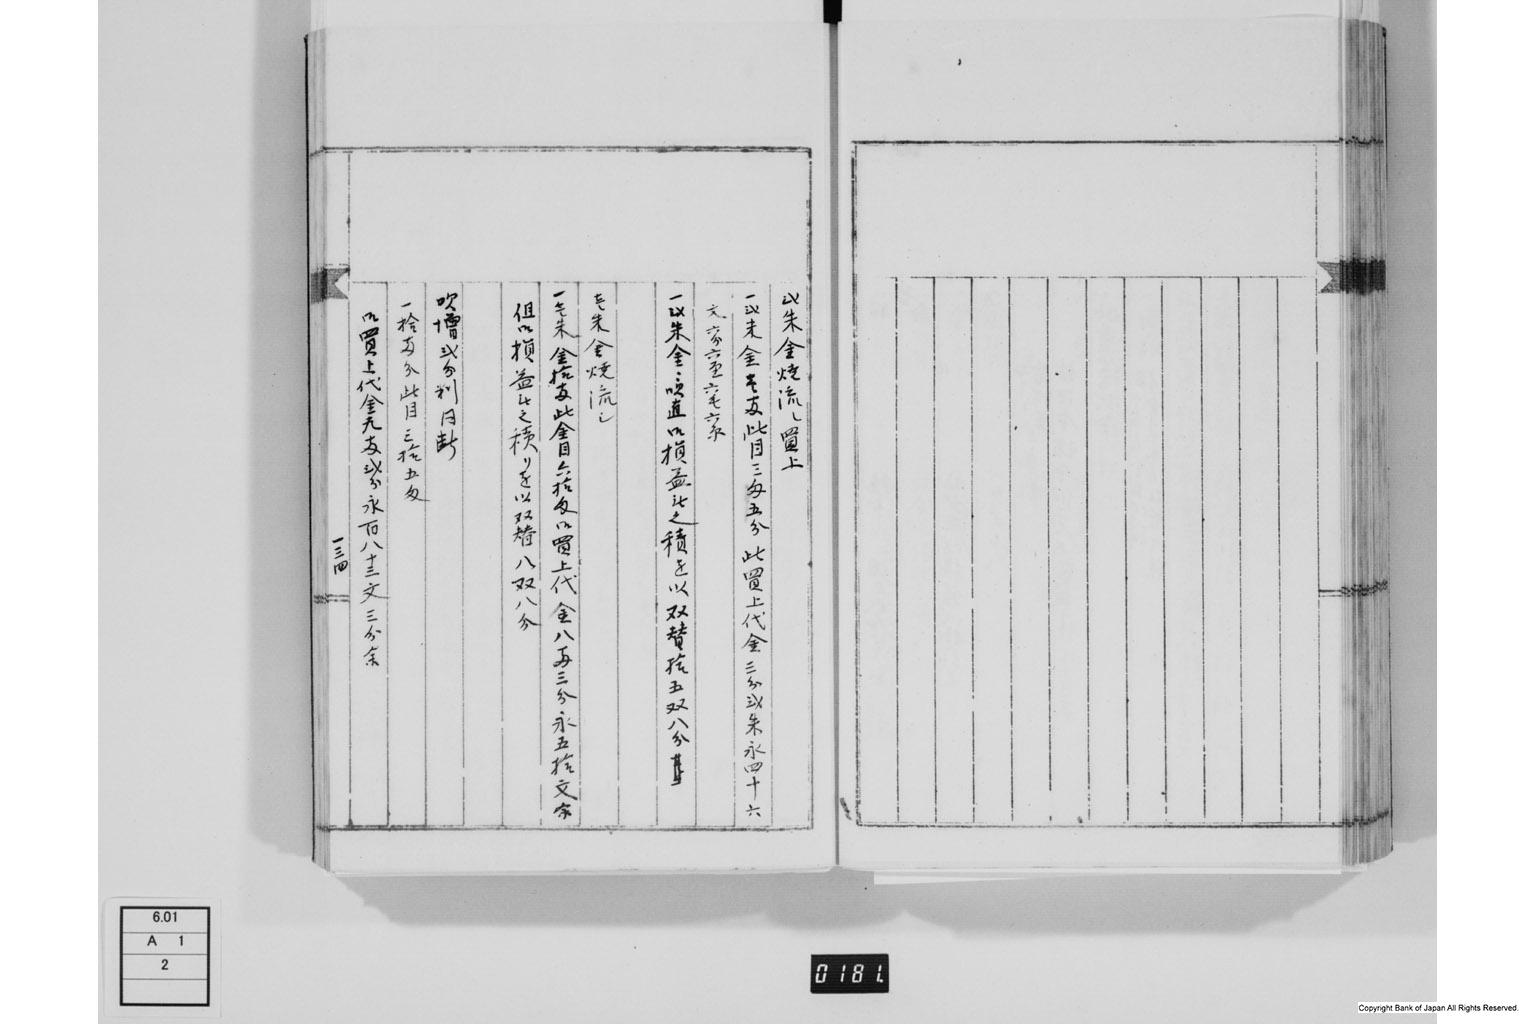 弐朱金焼流し買上
一弐朱金壱両此目三匁五分此買上代金三分弐朱永四十六
文六分六厘六毛六糸
一弐朱金 直御損益無之積を以双替拾五双八分
壱朱金焼流し
一壱朱金拾両此金目六拾匁御買上代金八両三分永五拾文余
但御損益無之積りを以双替八双八分
吹増弐分判同断
一拾両分此目三拾五匁
御買上代金九両弐分永百八十三文三分余
一三四
6.01
A 1
2
0181.
Copyright Bank of Japan All Rights Reserved.